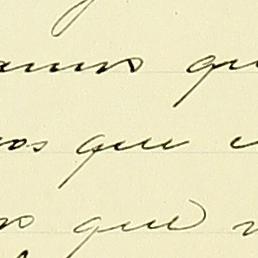 amos qu
os que
os que